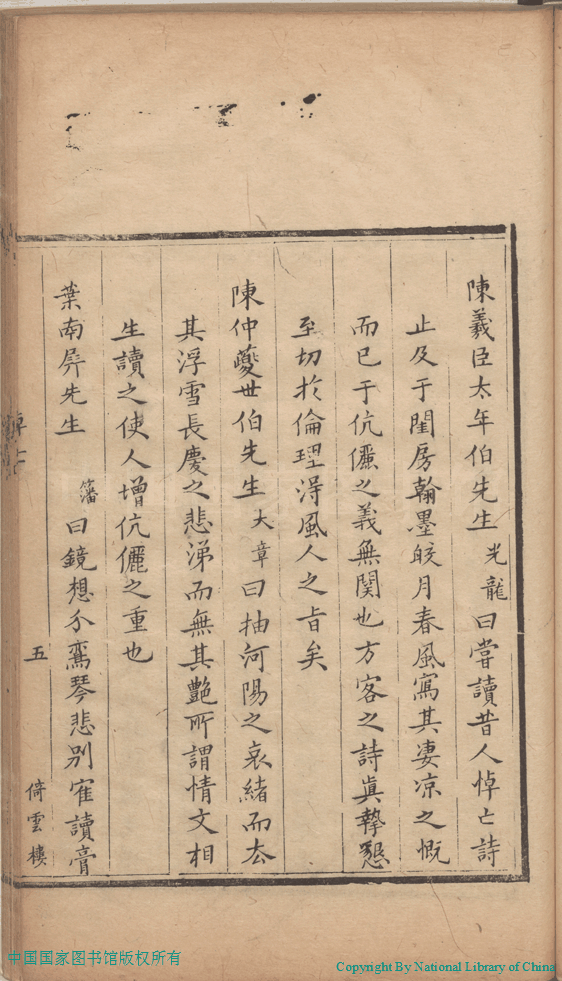 陳羲臣太年伯先生光龍曰嘗讀昔人悼亡詩
止及于閨房翰墨皎月春風寫其凄凉之慨
而已于伉儷之義無関也方客之詩真摯懇
至切於倫理淂風人之旨矣
陳仲夔世伯先生大章曰抽河陽之哀緒而厺
其浮雪長慶之悲涕而無其艶所謂情文相
生讀之使人增伉儷之重也
葉南屏先生 籓曰鏡想分鸞琴悲别寉讀膏
五
倚雲樓
中国国家图书馆版权所有
Copyright By National Library of China